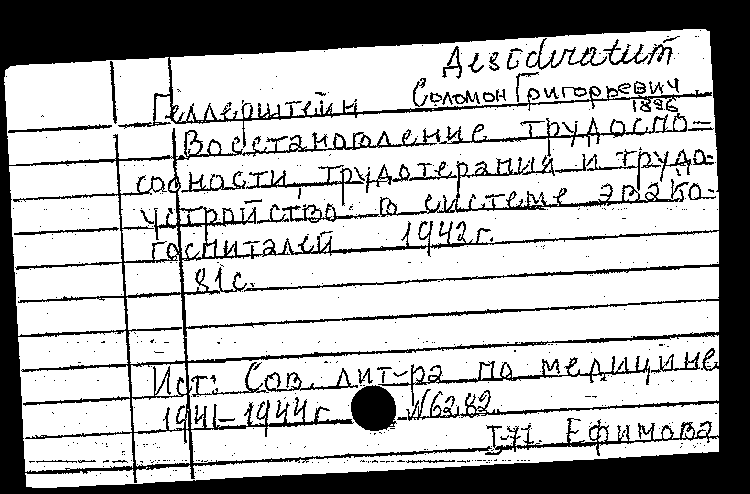 Дезidiratum
Геллерштейн Соломон Григорьевич
1896
Восстановление трудоспо-
собности, трудотерапия и трудо-
устройство в системе эвако-
госпиталей 1942г.
81с.
Ист: Сов. лит-ра по медицине
1941-1944г N6282.
I-71 Ефимова